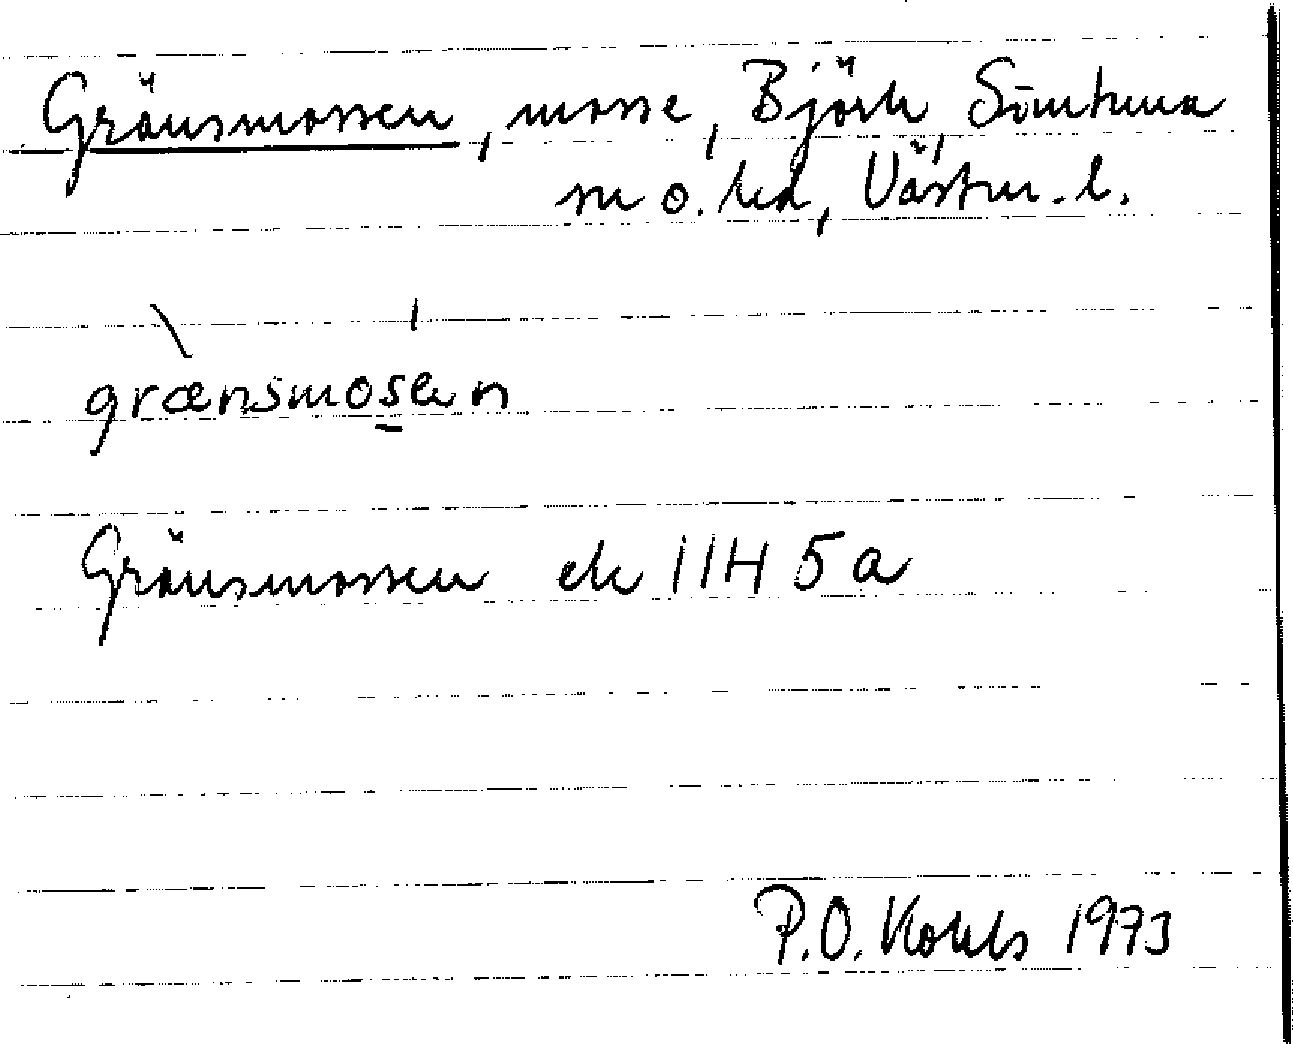 Gränsmossen, mosse, Björk, Simtuna
sn o. hd, Västm. l.
grænsmosen
Gränsmossen ek 11H 5a
P.O. 1973